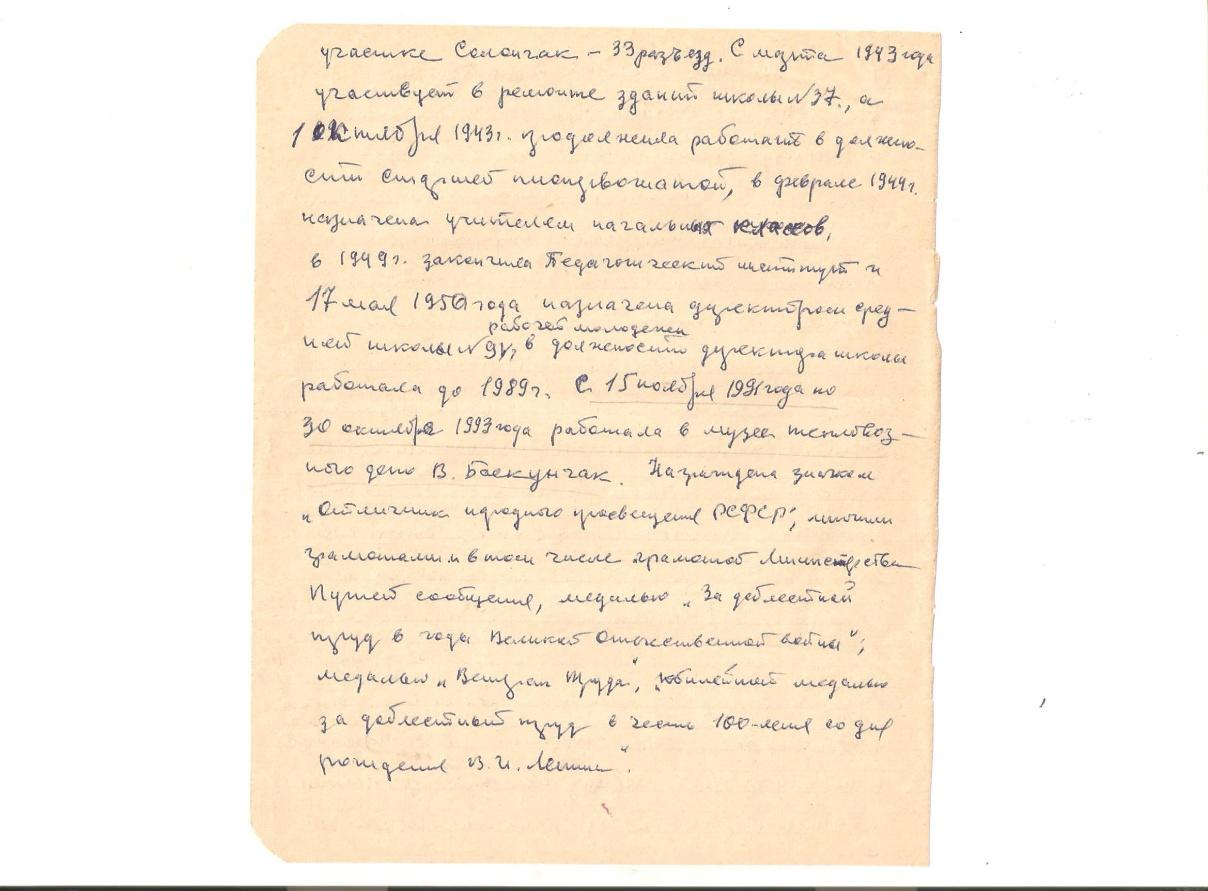 участке Солончак – 33 разъезд. С марта 1943 года
участвует в ремонте зданий школы №37., а
1 октября 1943г. продолжила работать в должно-
сти старшей пионервожатой, в феврале 1944г.
назначена учителем начальных классов,
в 1949г. закончила Педагогический институт и
17 мая 1950 года назначена директором сред-
рабочей молодежи
ней школы №91, в должности директора школы
работала до 1989г. С 15 ноября 1991 года по
30 октября 1993 года работала в музее тепловоз-
ного депо В. Баскунчак. Награждена значком
„Отличник народного просвещения РСФСР", многими
грамотами и в том числе грамотой Министерства
Путей сообщения, медалью „За доблестный
труд в годы Великой Отечественной войны";
медалью „Ветеран Труда", „юбилейной медалью
за доблестный труд в честь 100-летия со дня
рождения В.И. Ленина".